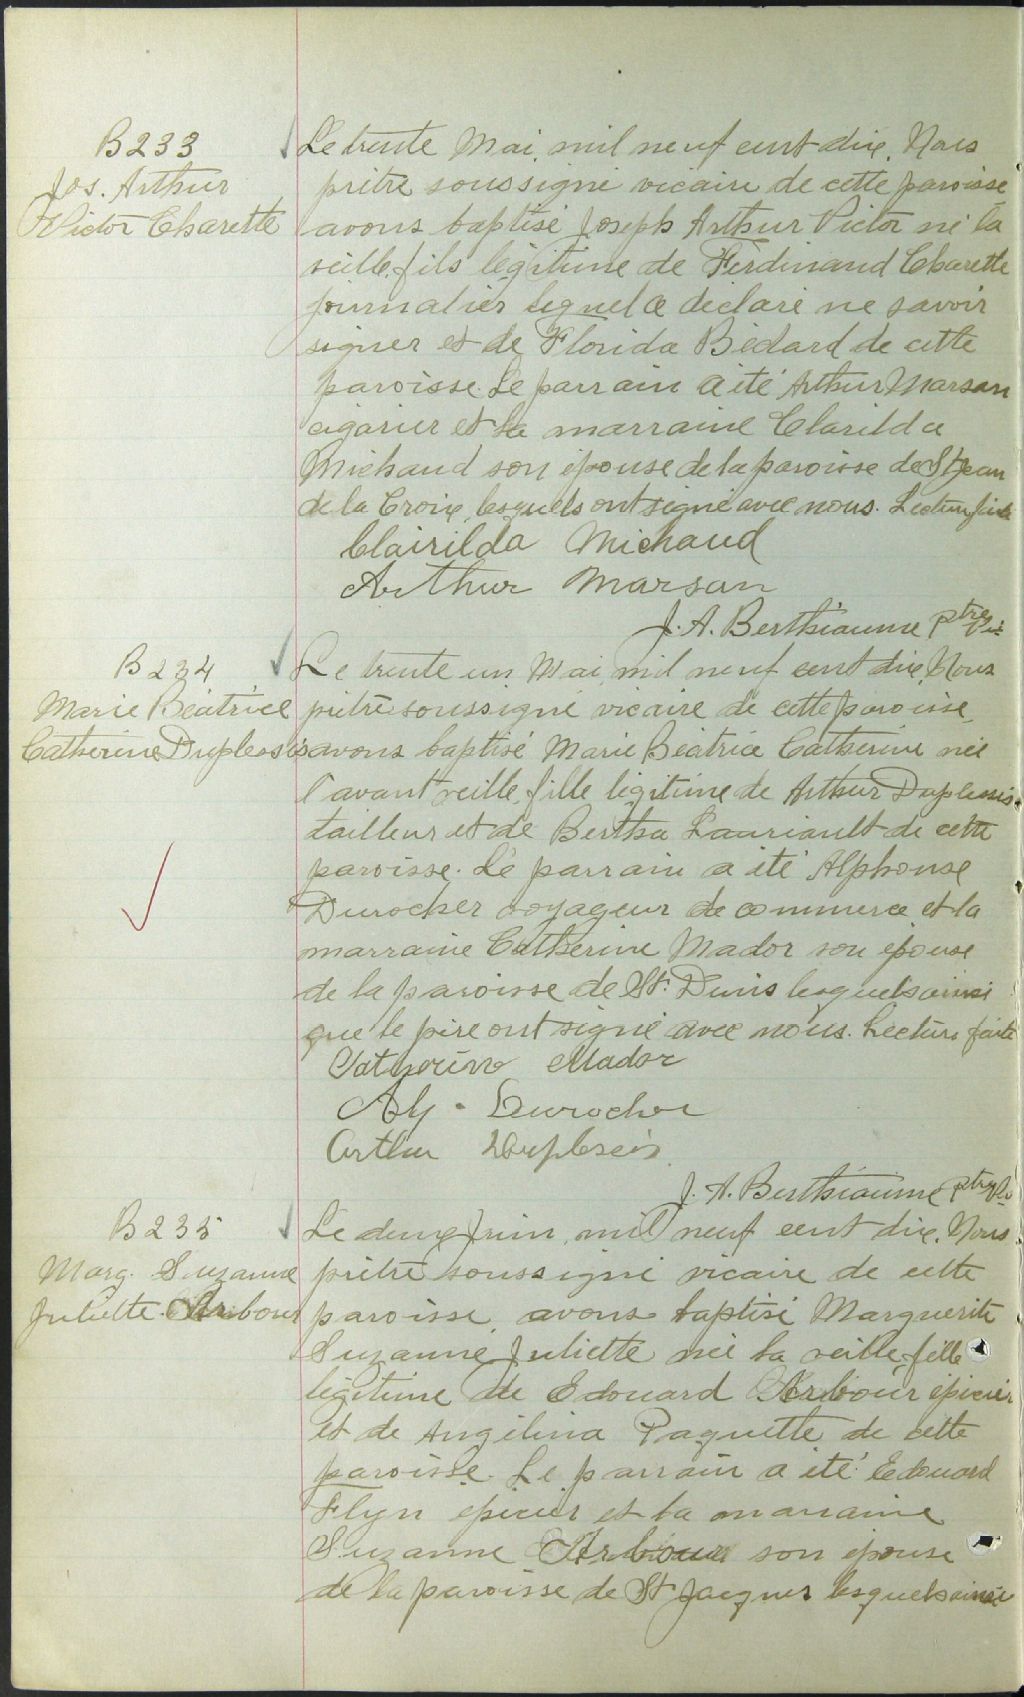 B233
Jos. Arthur
Victor Charette
Le trente Mai, mil neuf cent dix, Nous
prêtre soussigné vicaire de cette paroisse
avons baptisé Joseph Arthur Victor né la
veille, fils légitime de Ferdinand Charette
journalier lequel a déclaré ne savoir
signer et de Florida Bédard de cette
paroisse. Le parrain a été Arthur Marsan
cigarier et la marraine Clarilda
Michaud son épouse de la paroisse de St Jean
de la Croix, lesquels ont signé avec nous. Lecture faite
Clairilda Michaud
Arthur Marsan
J. A. Berthiaume ptre Vic
B234
Marie Béatrice
Catherine Duplessis
Le trente un Mai, mil neuf cent dix, Nous
prêtre soussigné vicaire de cette paroisse,
avons baptisé Marie Béatrice Catherine née
l'avant veille, fille légitime de Arthur Duplessis
tailleur et de Bertha Lauriault de cette
paroisse. Le parrain a été Alphonse
Durocher voyageur de commerce et la
marraine Catherine Mador son épouse
de la paroisse de St. Denis lesquels ainsi
que le père ont signé avec nous. Lecture faite
Catherine Mador
Alp. Durocher
Arthur Duplessis
J. A. Berthiaume ptre Vic
B235
Marg. Suzanne
Juliette Arbour
Le deux Juin, mil neuf cent dix, Nous
prêtre soussigné vicaire de cette
paroisse, avons baptisé Marguerite
Suzanne Juliette née la veille, fille
légitime de Edouard Arbour épicier
et de Angélina Paquette de cette
paroisse. Le parrain a été Edouard
Flyn épicier et la marraine
Suzanne Arbour son épouse
de la paroisse de St Jacques lesquels ainsi